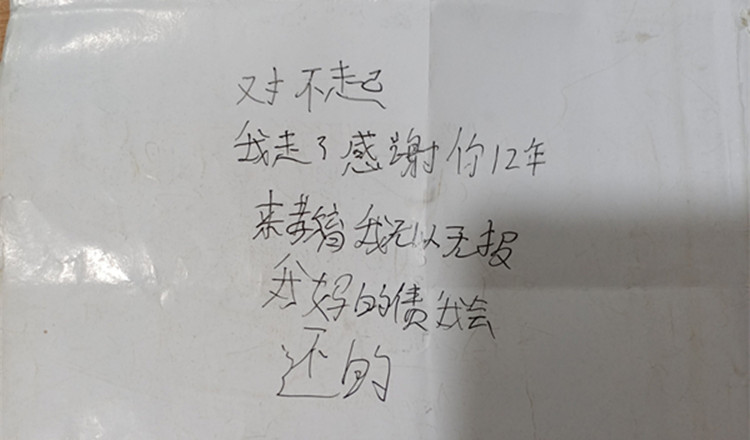 对不起
我走了感谢你12年
来教育我无以无报
我好的债我会
还的